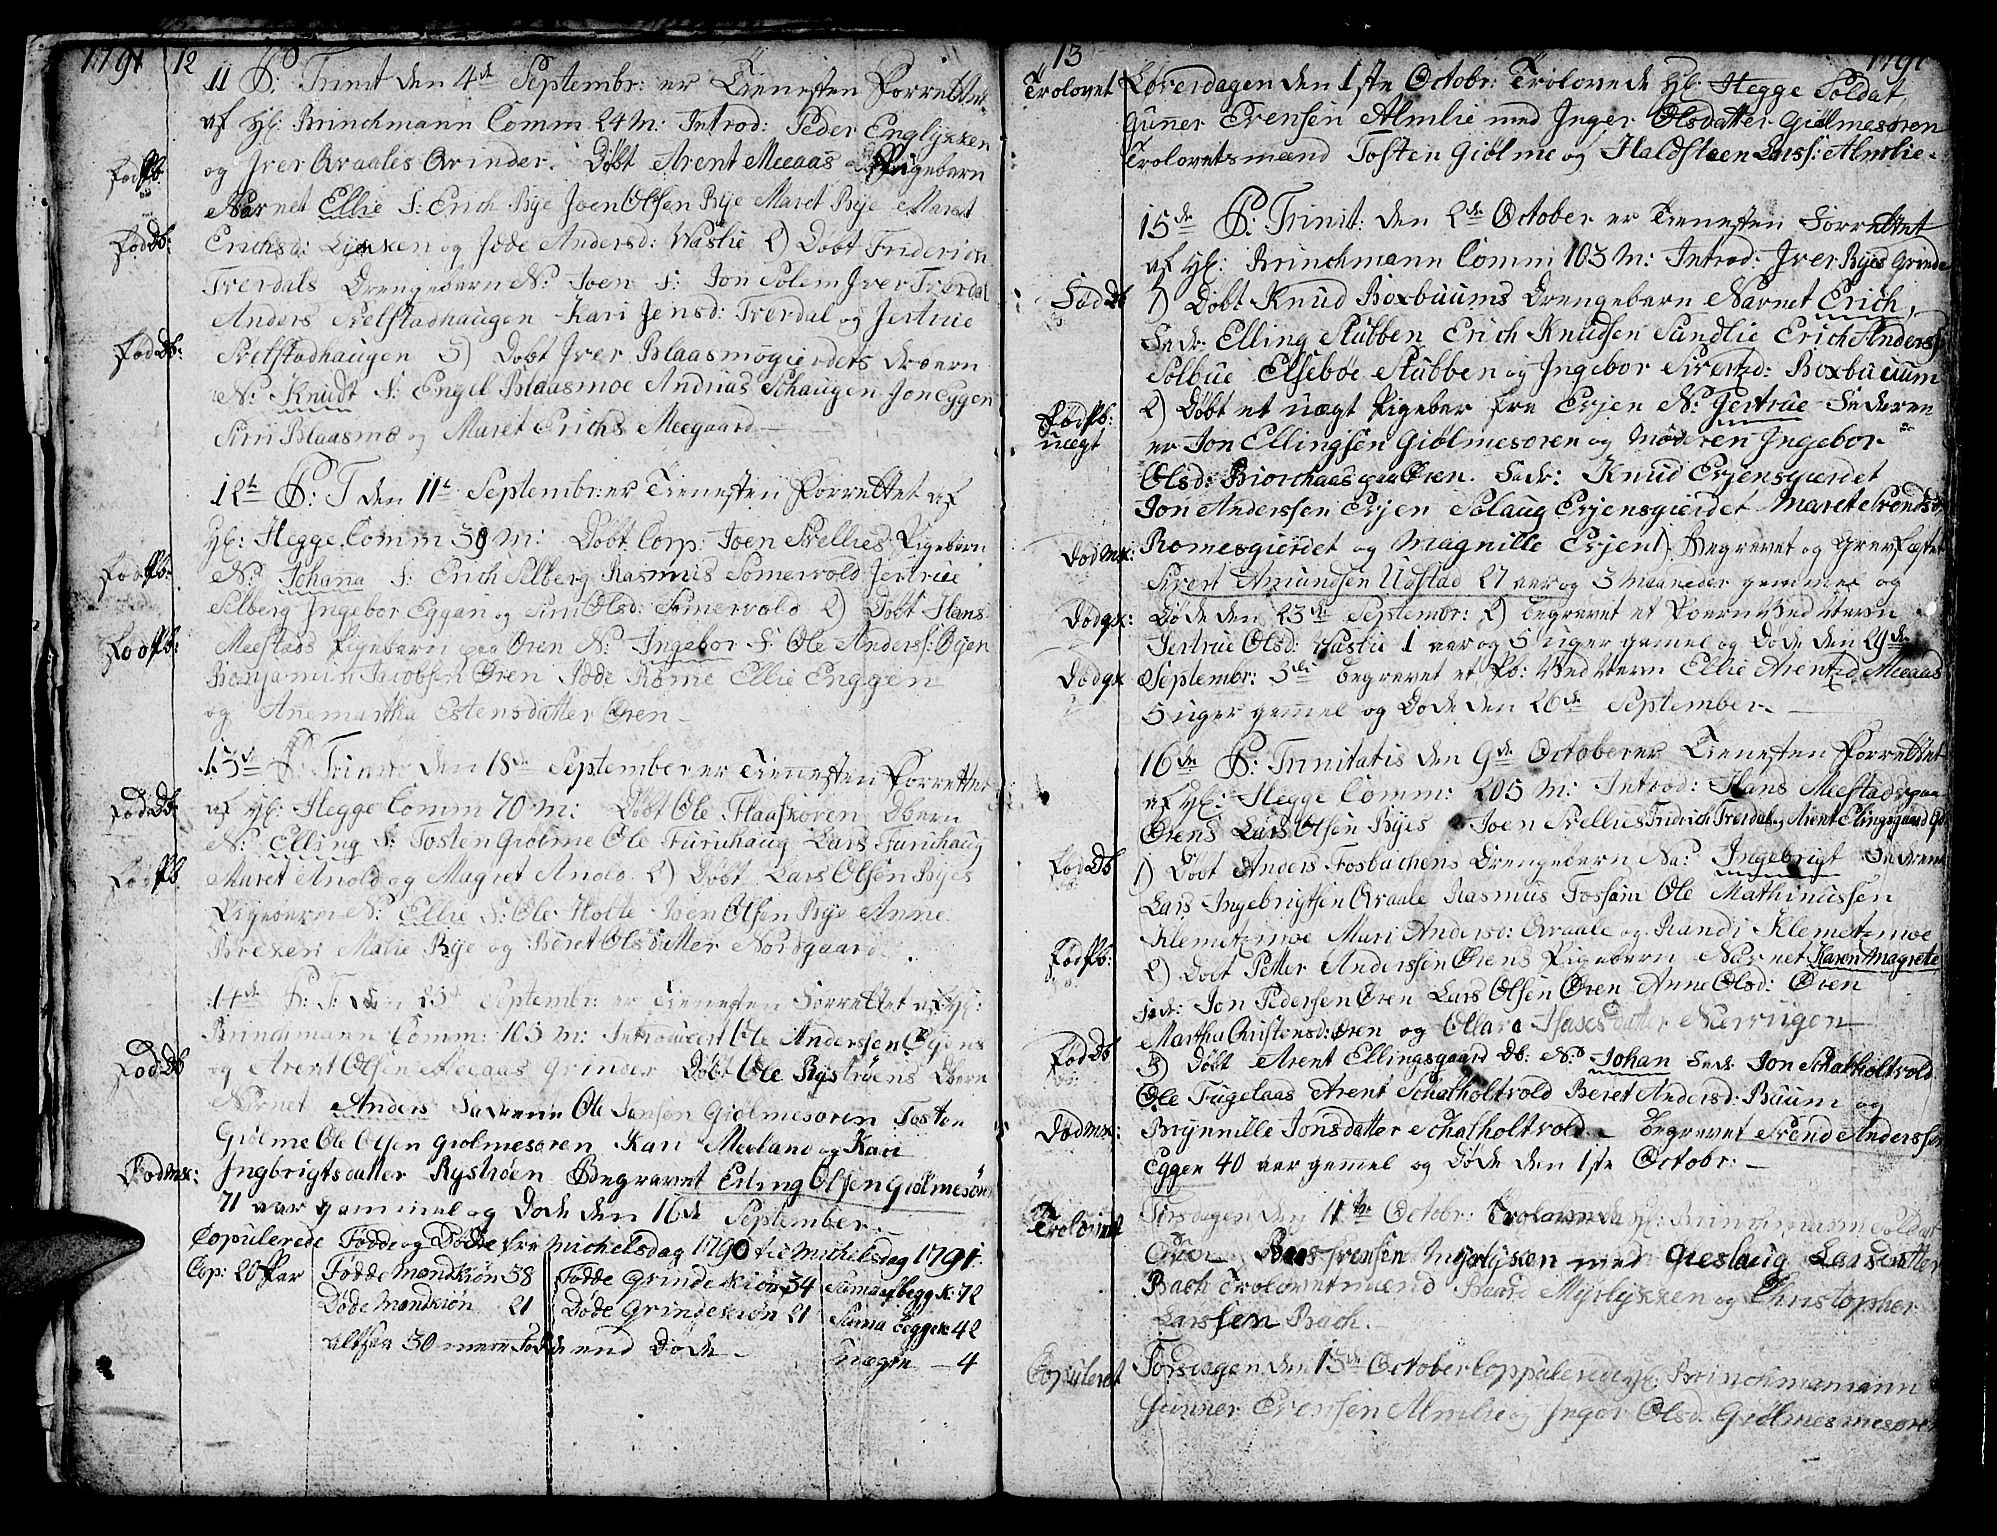 1791 12
11 S: Trinit den 4de Septembr: er Tienesten Forrettet
af Hl: Brinchmann Comm 24 M: Introd: Peder Englykken
og Jver Qraales Qvinder. Døbt Arent Meeaas Pigebarn
Fød Pb:
Navnet Ellie S: Erich Bye Joen Olsen Bye Maret Bye Maret
Fød Db:
Erichsd: Lykken og Jode Andersd: Waslie 2) Døbt Friderich
Trerdals Drengebarn N: Joen S: Jon Solem Jver Trerdal
Anders Selstadhaugen Kari Jensd: Trerdal og Jertrue
Fød Db:
Selstadhaugen 3) Døbt Jver Blaasmogierdets
N: Knudt S: Engel Blaasmoe Andrias Schaugen Jon Eggen
Siri Blaasmo og Maret Erichs Meegaard
12te S: T den 11te Septembr: er Tienesten Forrettet af
Hl: Hegge Comm 39 M: Døbt Corp: Joen Srellies Pigebarn
Fød Pb:
N: Johana S: Erich Selberg Rasmus Somervold Jertrue
Selberg Ingebor Eggan og Siri Olsd: Somervold 2) Døbt Hans
Fød Pb:
Meestads Pigebarn paa Øren N: Ingebor S: Ole Anders: Øyen
Benjamin Jacobsen Øren Jode Rome Ellie Enggen
og Anemartha Estensdatter Øren
13de S: Trinit den 18de September er Tienesten Forrettet
Fød Db:
af Hl: Hegge Comm 70 M: Døbt Ole Flaaskoren Dbarn
N: Elling S: Tosten Giolme Ole Furuhaug Lars Furuhaug
Fød Pb
Maret Anold og Magret Anold 2) Døbt Lars Olsen Byes
Pigebarn N: Ellie S: Ole Holte Joen Olsen Bye Anne
Brekken Malie Bye og Beret Olsdatter Nordgaard
14de S: T: den 25de Septembr: er Tienesten Forrettet af Hl:
Brinchmann Comm: 105 M: Introducert Ole Anderssen Øyens
Fød Db
og Arent Olsen Meeaas Qvinder Døbt Ole Rystrøens Dbarn
Navnet Anders Faderne Ole Jonsen Giolmesøren Tosten
Giølme Ole Olsen Giolmesoren Kari Meeland og Kari
Død Mk:
Ingbrigtsdatter Rystrøen Begravet Erling Olsen Giolmesøren
71 aar gammel og Døde den 16de September
Copulerede Fødde og Døde fra Michelsdag 1790 til Michelsdag 1791
Cop: 20 Par Fødde Mandkiøn 58 Fødde Qvindekiøn 34 Summa begge K: 92
Døde Mandkiøn 21 Døde Qvindekiøn 21 Suma begge K: 42
altsaa 50 mere Fødde end Døde uægte 4
13 1791
Trolovet
Løverdagen den 1ste Octobr: Trolovede Hl: Hegge Soldat
Gunner Evensen Almlie med Inger Olsdatter Giølmesøren
Trolovetsmænd Tosten Giølme og Haldsteen Larss: Almlie
15de S: Trinit: den 2de October er Tienesten Forrettet
af Hl: Brinchmann Comm 103 M: Introd: Jver Byes Qvinde
Fød Db
1) Døbt Knud Boxbuums Drengebarn Navnet Erich,
Fadr: Elling Stubben Erich Knudsen Sundlie Erich Anderss
Solbue Elsebøe Stubben og Ingebor Siverd: Boxbuum
Fød Pb: uægt
2) Døbt et uægt Pigebar fra Evjen N: Jertrue Faderen
er Jon Ellingsen Giølmesøren og Moderen Ingebor
Olsd: Biørchaas paa Øren. Fadr: Knud Evjensgierdet
Jon Anderssen Evjen Solaug Evjensgierdet Maret Trondsd
Død Mk:
Romesgierdet og Magnille Evjen 1) Begravet og Grafæstet
Sivert Amundsen Udstad 27 aar og 3 maaneder gammel og
Død qk:
Døde den 23de Septembr: 2) Begravet et
Jertrue Olsd: Haslie 1 aar og 5 Uger gamel og Døde den 29de
Død qk
Septembr: 3de Begravet et Pb: Ellie Arentd Meeaas
5 uger gamel og Døde den 26de September
16de S: Trinitatis den 9de October er Tienesten Forrettet
af Hl: Hegge Comm: 205 M: Introd: Hans Meestads paa
Ørens Lars Olsen Byes Joen Srellies Fridrich Trerdal og Arent Elingsgaard Q:
Fød Db
1) Døbt Anders Fosbachens Drengebarn Na: Ingebrigt Faderne
Lars Ingebrigtsen Qraale Rasmus Fossam Ole Mathinussen
Klemetzmoe Mari Andersd: Qraale og Randi Klemetzmoe
Fød Pb:
2) Døbt Petter Anderssen Ørens Pigebarn Navnet Karen Magrete
Fadr: Jon Pedersen Øren Lars Olsen Øren Anne Olsd: Øren
Martha Christensd: Øren og Ollara Isaksdatter Nerrugen
Fød Db
3) Døbt Arent Ellingsgaard Db: N: Johan Fadr Jon Schalholtvold
Ole Fugelaas Arent Schalholtvold Beret Andersd: Buum og
Død Mk:
Brynnille Jonsdatter Schalholtvold. Begravet Trond Anderssen
Eggen 40 aar gamel og Døde den 1ste Octobr:
Trolovet
Tirsdagen den 11te Octobr: Trolovede Hl: Brinchmann Soldat
Evensen Myrlykken med Gieslaug Larsdatter
Bach Trolovetsmænd Baard Myrlykken og Christopher
Larssen Bach.
Copuleret
Torsdagen den 13de October Coppulerede Hl: Brinchmamann
Gunner Evensen Almlie og Inger Olsd: Giølmesmesøren